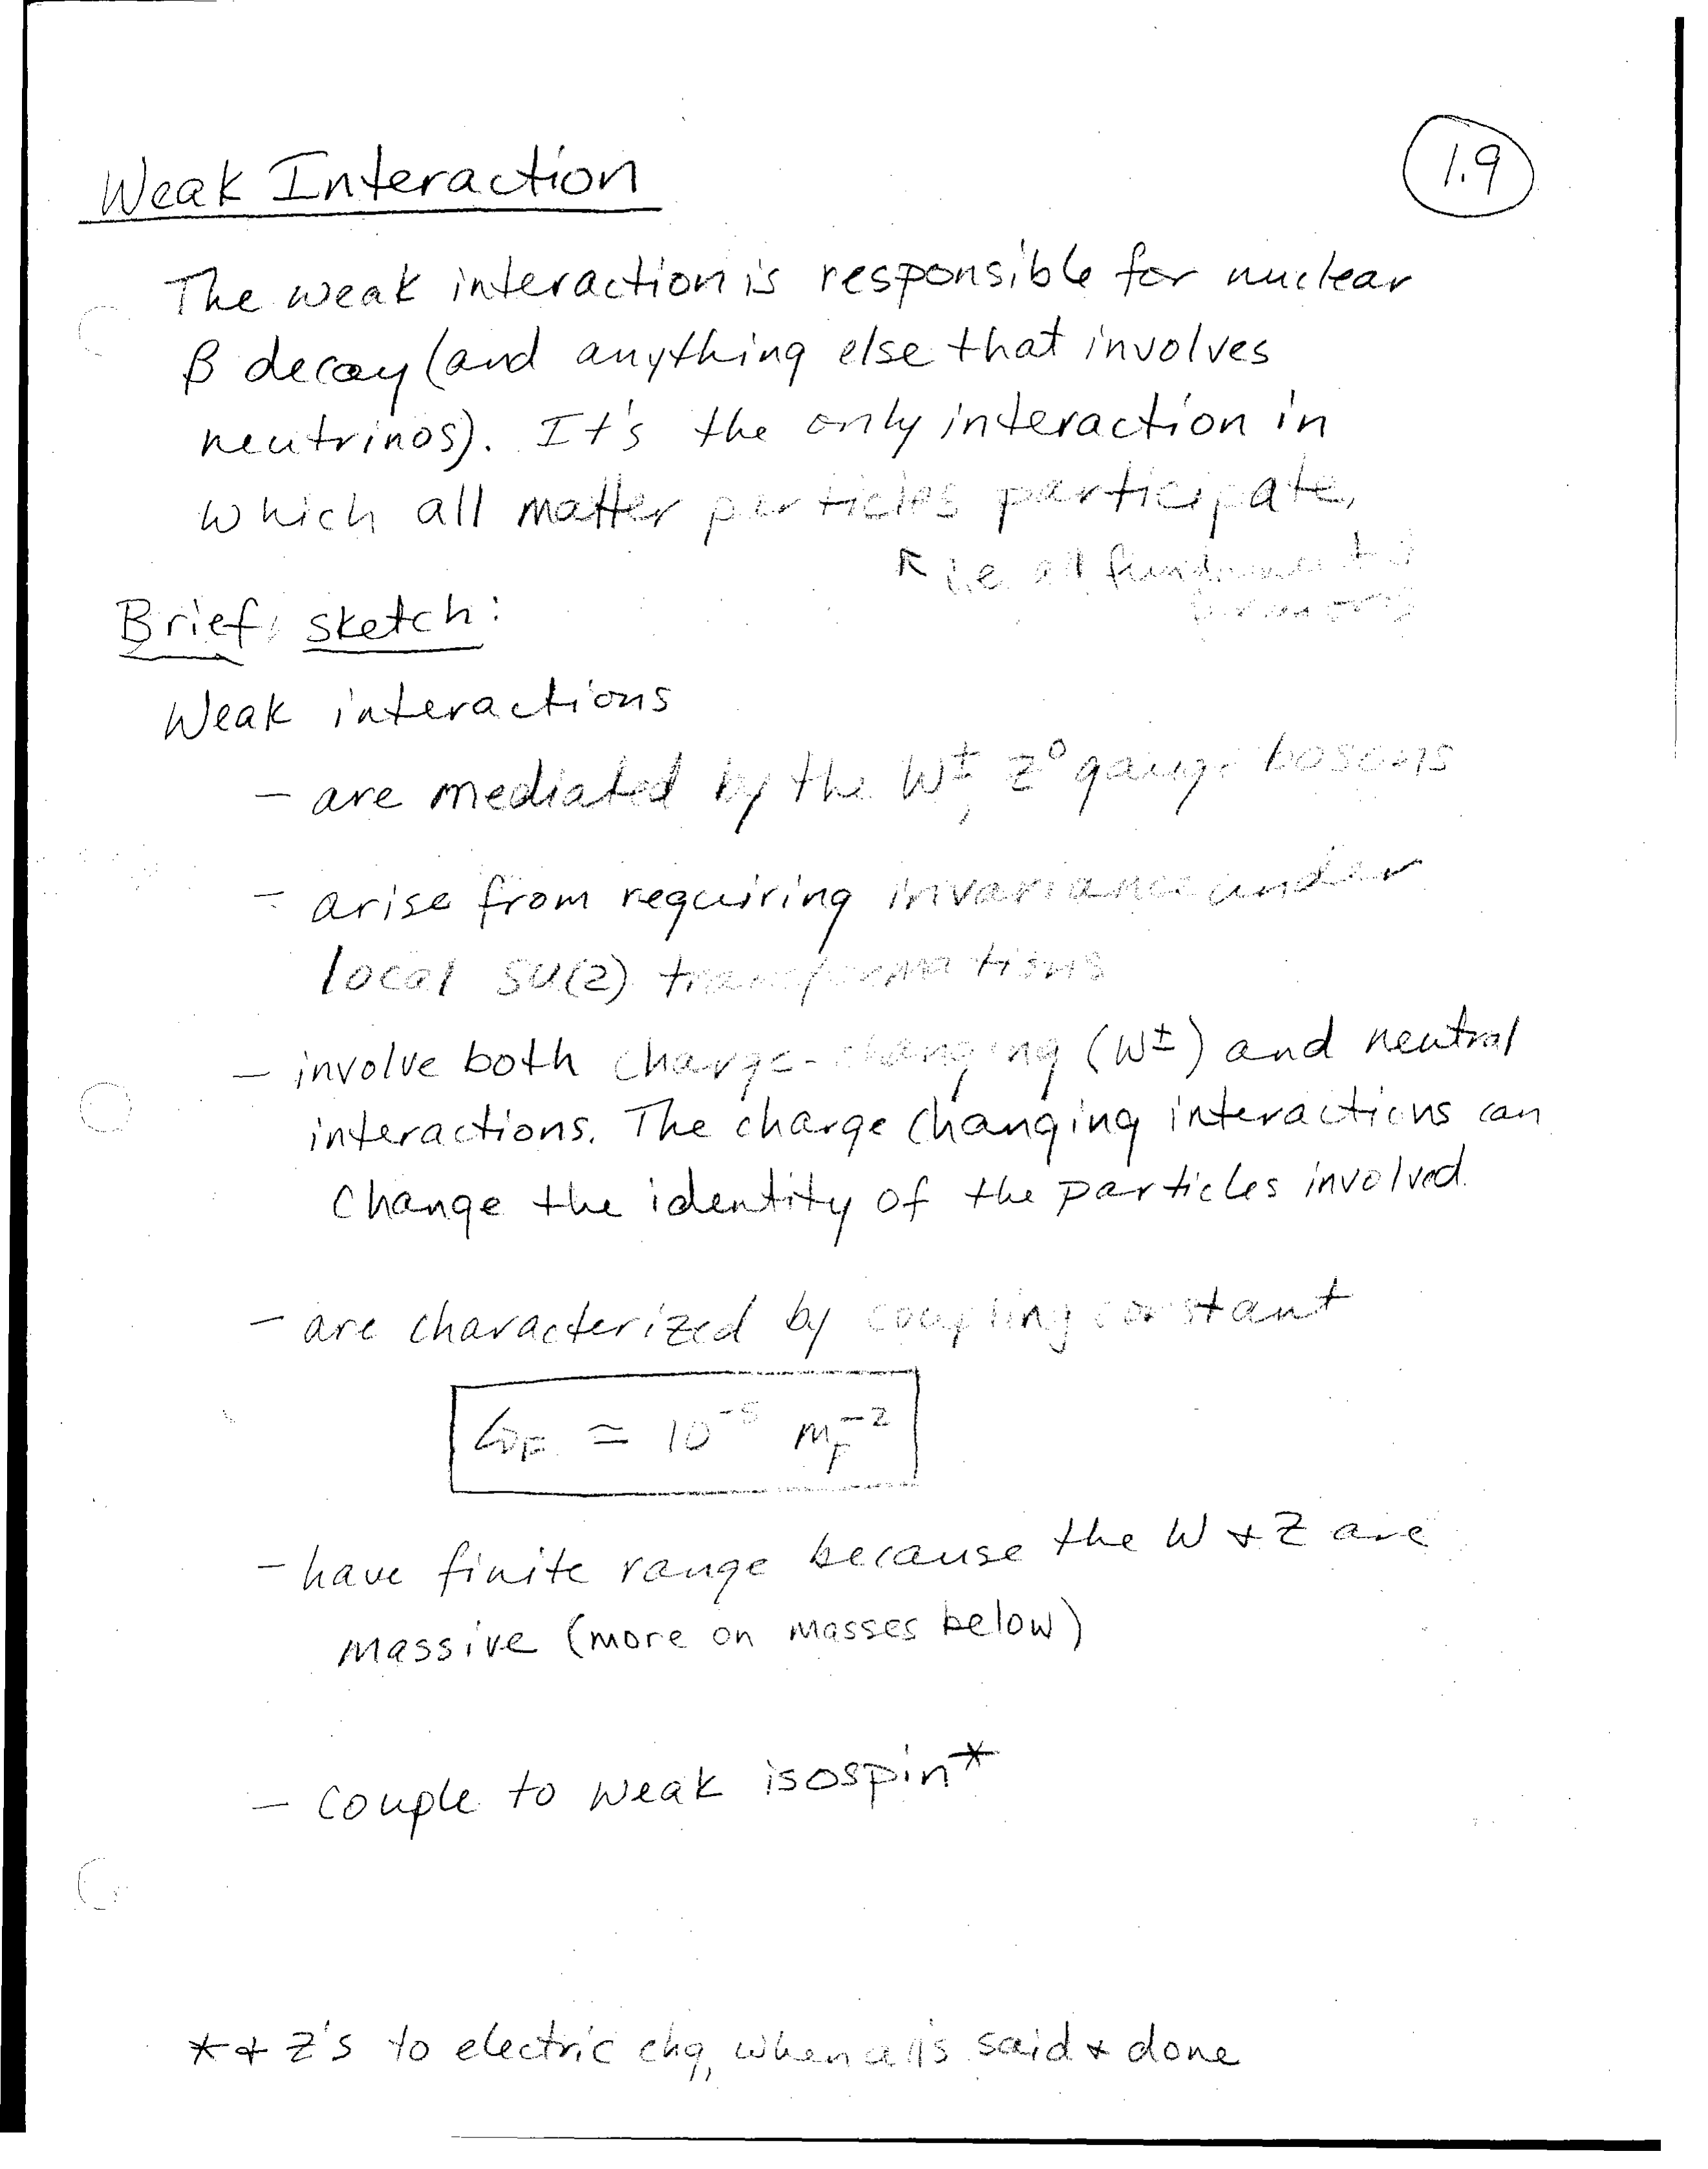 Weak Interaction
1.9
The weak interaction is responsible for nuclear
β decay (and anything else that involves
neutrinos). It's the only interaction in
which all matter particles participate,
↖ i.e. all fundamental
Brief sketch:
Weak interactions
– are mediated by the W±, Z⁰ gauge bosons
– arise from requiring invariance under
local SU(2) transformations
– involve both charge-changing (W±) and neutral
interactions. The charge changing interactions can
change the identity of the particles involved.
– are characterized by coupling constant
G_F ≃ 10⁻⁵ m_p⁻²
– have finite range because the W & Z are
massive (more on masses below)
– couple to weak isospin*
* & Z's to electric chg, when all's said & done